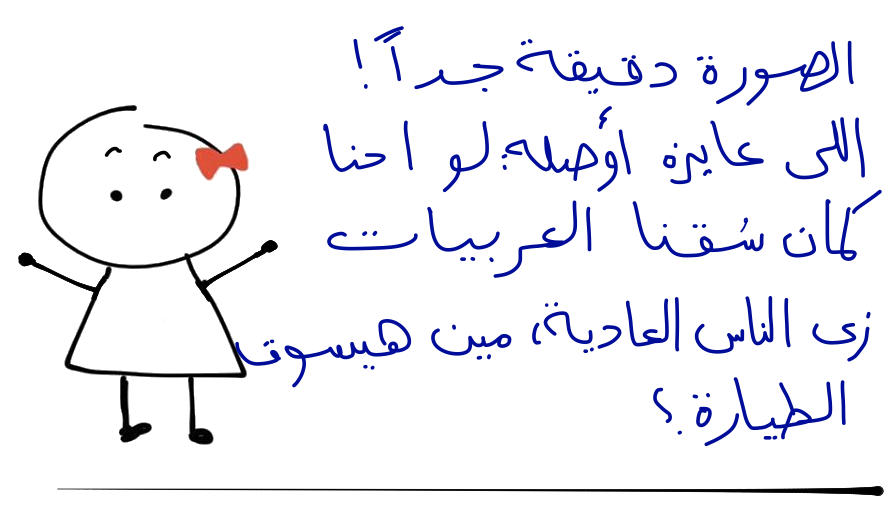 الصورة دقيقة جداً!
اللى عايزه أوصله: لو احنا
كمان سُقنا العربيات
زى الناس العادية، مين هيسوق
الطيارة؟